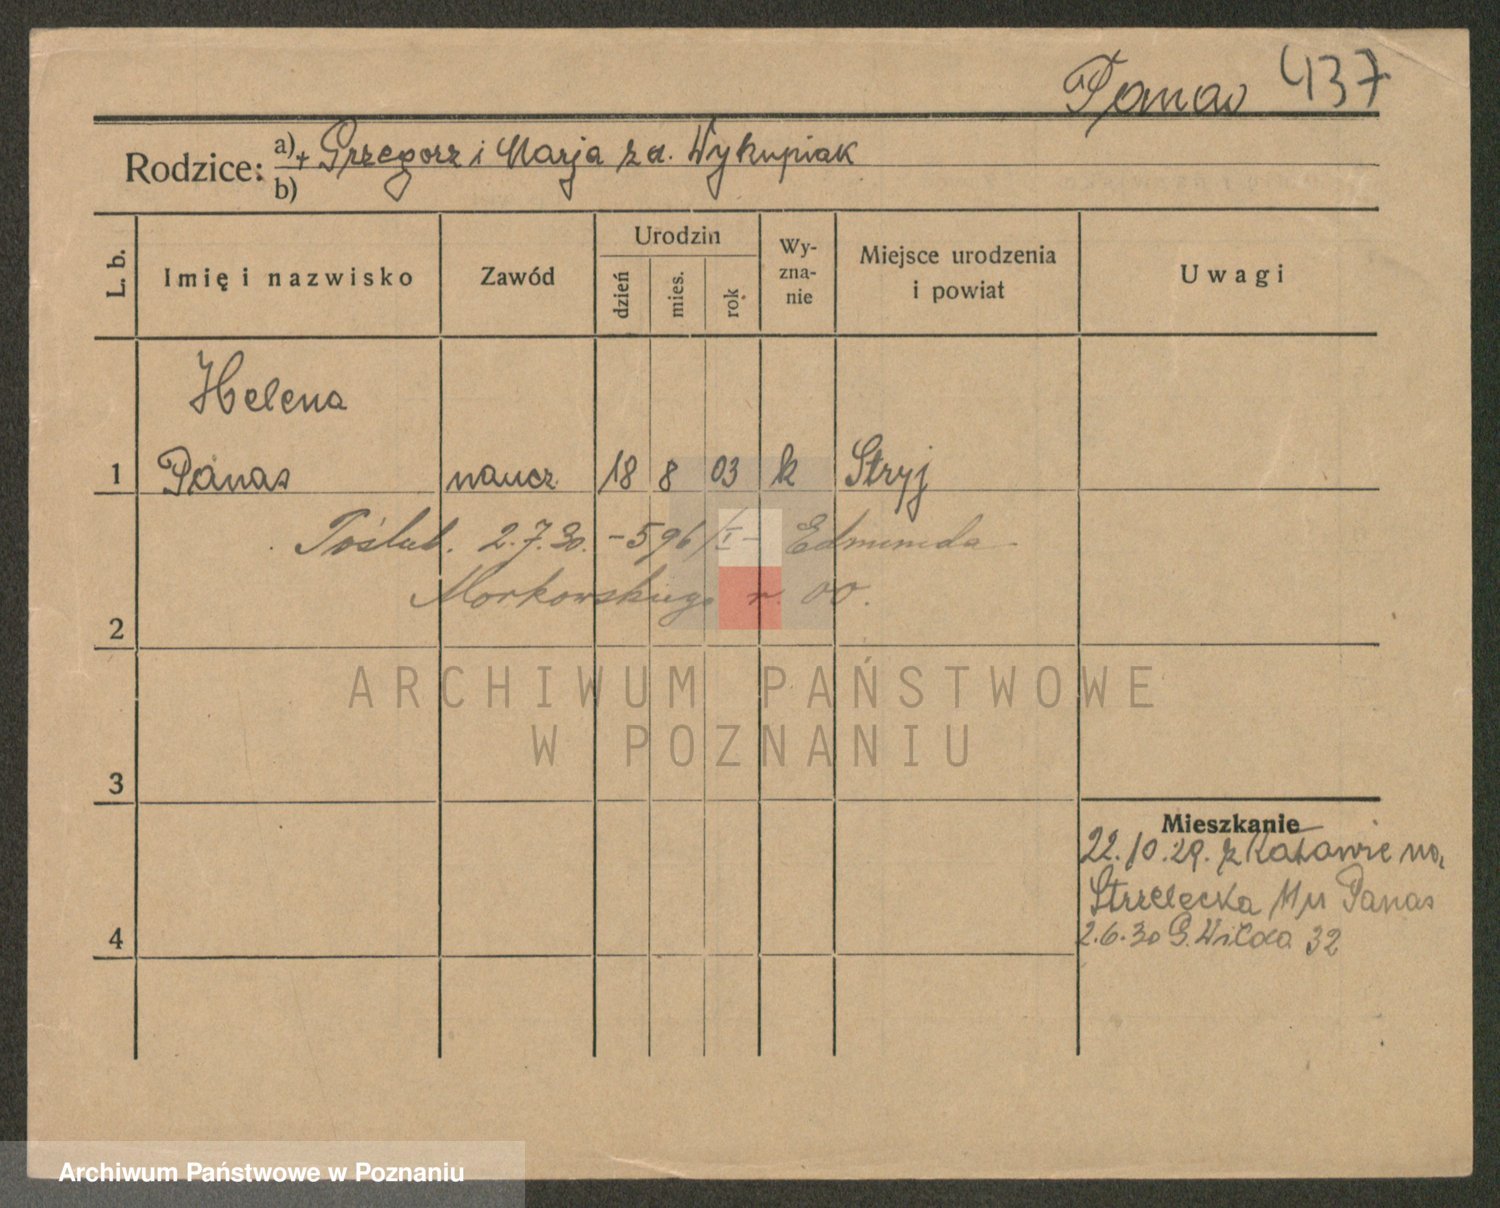 Panas 437
Rodzice: a) + Grzegorz i Marja z d. Wykupiak
b)
L. b. Imię i nazwisko Zawód Urodzin dzień mies. rok Wyznanie Miejsce urodzenia i powiat Uwagi
Helena
1 Panas naucz. 18 8 03 k Stryj
Poślub. 2.7.30. – 596/I – Edmunda
Morkowskiego r. 00.
2
ARCHIWUM PAŃSTWOWE
W POZNANIU
3
Mieszkanie
22.10.29. z Katowic no,
Strzelecka 11 m Panas
4 2.6.30 G. Wilda 32
Archiwum Państwowe w Poznaniu